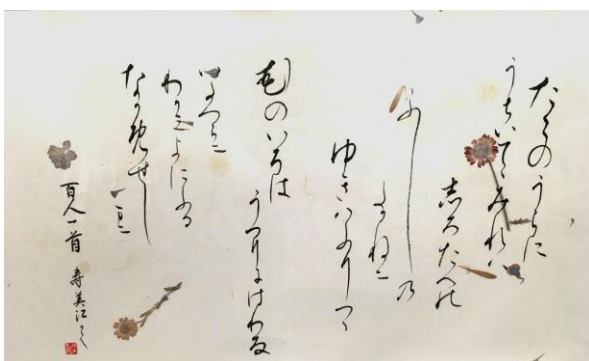 たこのうらに
うちいてゝみれハ
志ろたへの
ふし乃
たかねに
ゆきハふりつゝ
花のいろは
うつりにけりな
いたつらに
わかみよにふる
なかめせし
まに
百人一首 寿美江かく